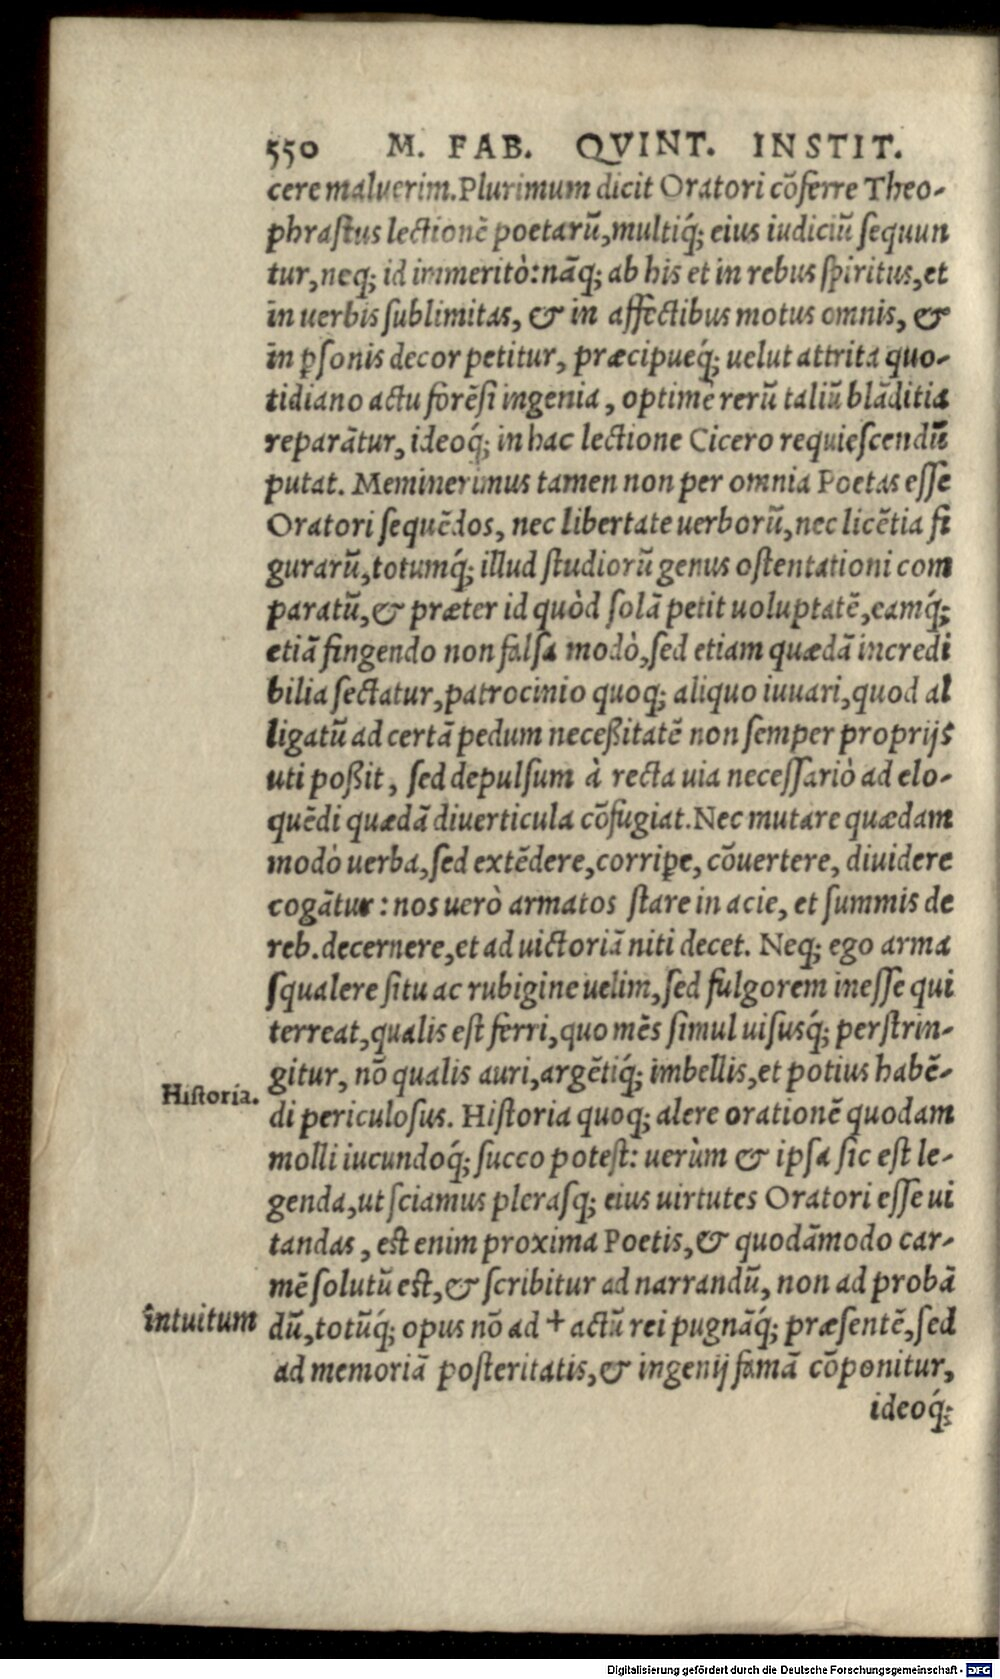 550 M. FAB. QVINT. INSTIT.
cere maluerim. Plurimum dicit Oratori cōferre Theo-
phraſtus lectionē poetarū, multiq́; eius iudiciū ſequun
tur, neq; id immeritò: nāq; ab his et in rebus ſpiritus, et
in uerbis ſublimitas, & in affectibus motus omnis, &
in ꝑſonis decor petitur, præcipueq́; uelut attrita quo-
tidiano actu forēſi ingenia, optimè rerū taliū blāditia
reparātur, ideoq́; in hac lectione Cicero requieſcendū
putat. Meminerimus tamen non per omnia Poetas eſſe
Oratori ſequēdos, nec libertate uerborū, nec licētia fi
gurarū, totumq́; illud ſtudiorū genus oſtentationi com
paratū, & præter id quòd ſolā petit uoluptatē, eamq́;
etiā fingendo non falſa modò, ſed etiam quædā incredi
bilia ſectatur, patrocinio quoq; aliquo iuuari, quod al
ligatū ad certā pedum neceßitatē non ſemper proprijs
uti poßit, ſed depulſum à recta uia neceſſariò ad elo-
quēdi quædā diuerticula cōfugiat. Nec mutare quædam
modò uerba, ſed extēdere, corriꝑe, cōuertere, diuidere
cogātur: nos uerò armatos ſtare in acie, et ſummis de
reb. decernere, et ad uictoriā niti decet. Neq; ego arma
ſqualere ſitu ac rubigine uelim, ſed fulgorem ineſſe qui
terreat, qualis eſt ferri, quo mēs ſimul uiſusq́; perſtrin-
gitur, nō qualis auri, argētiq́; imbellis, et potius habē-
Hiſtoria.
di periculoſus. Hiſtoria quoq; alere orationē quodam
molli iucundoq́; ſucco poteſt: uerùm & ipſa ſic eſt le-
genda, ut ſciamus pleraſq; eius uirtutes Oratori eſſe ui
tandas, eſt enim proxima Poetis, & quodāmodo car-
mē ſolutū eſt, & ſcribitur ad narrandū, non ad probā
intuitum
dū, totūq́; opus nō ad + actū rei pugnāq́; præſentē, ſed
ad memoriā poſteritatis, & ingenij famā cōponitur,
ideoq́;
Digitalisierung gefördert durch die Deutsche Forschungsgemeinschaft - DFG